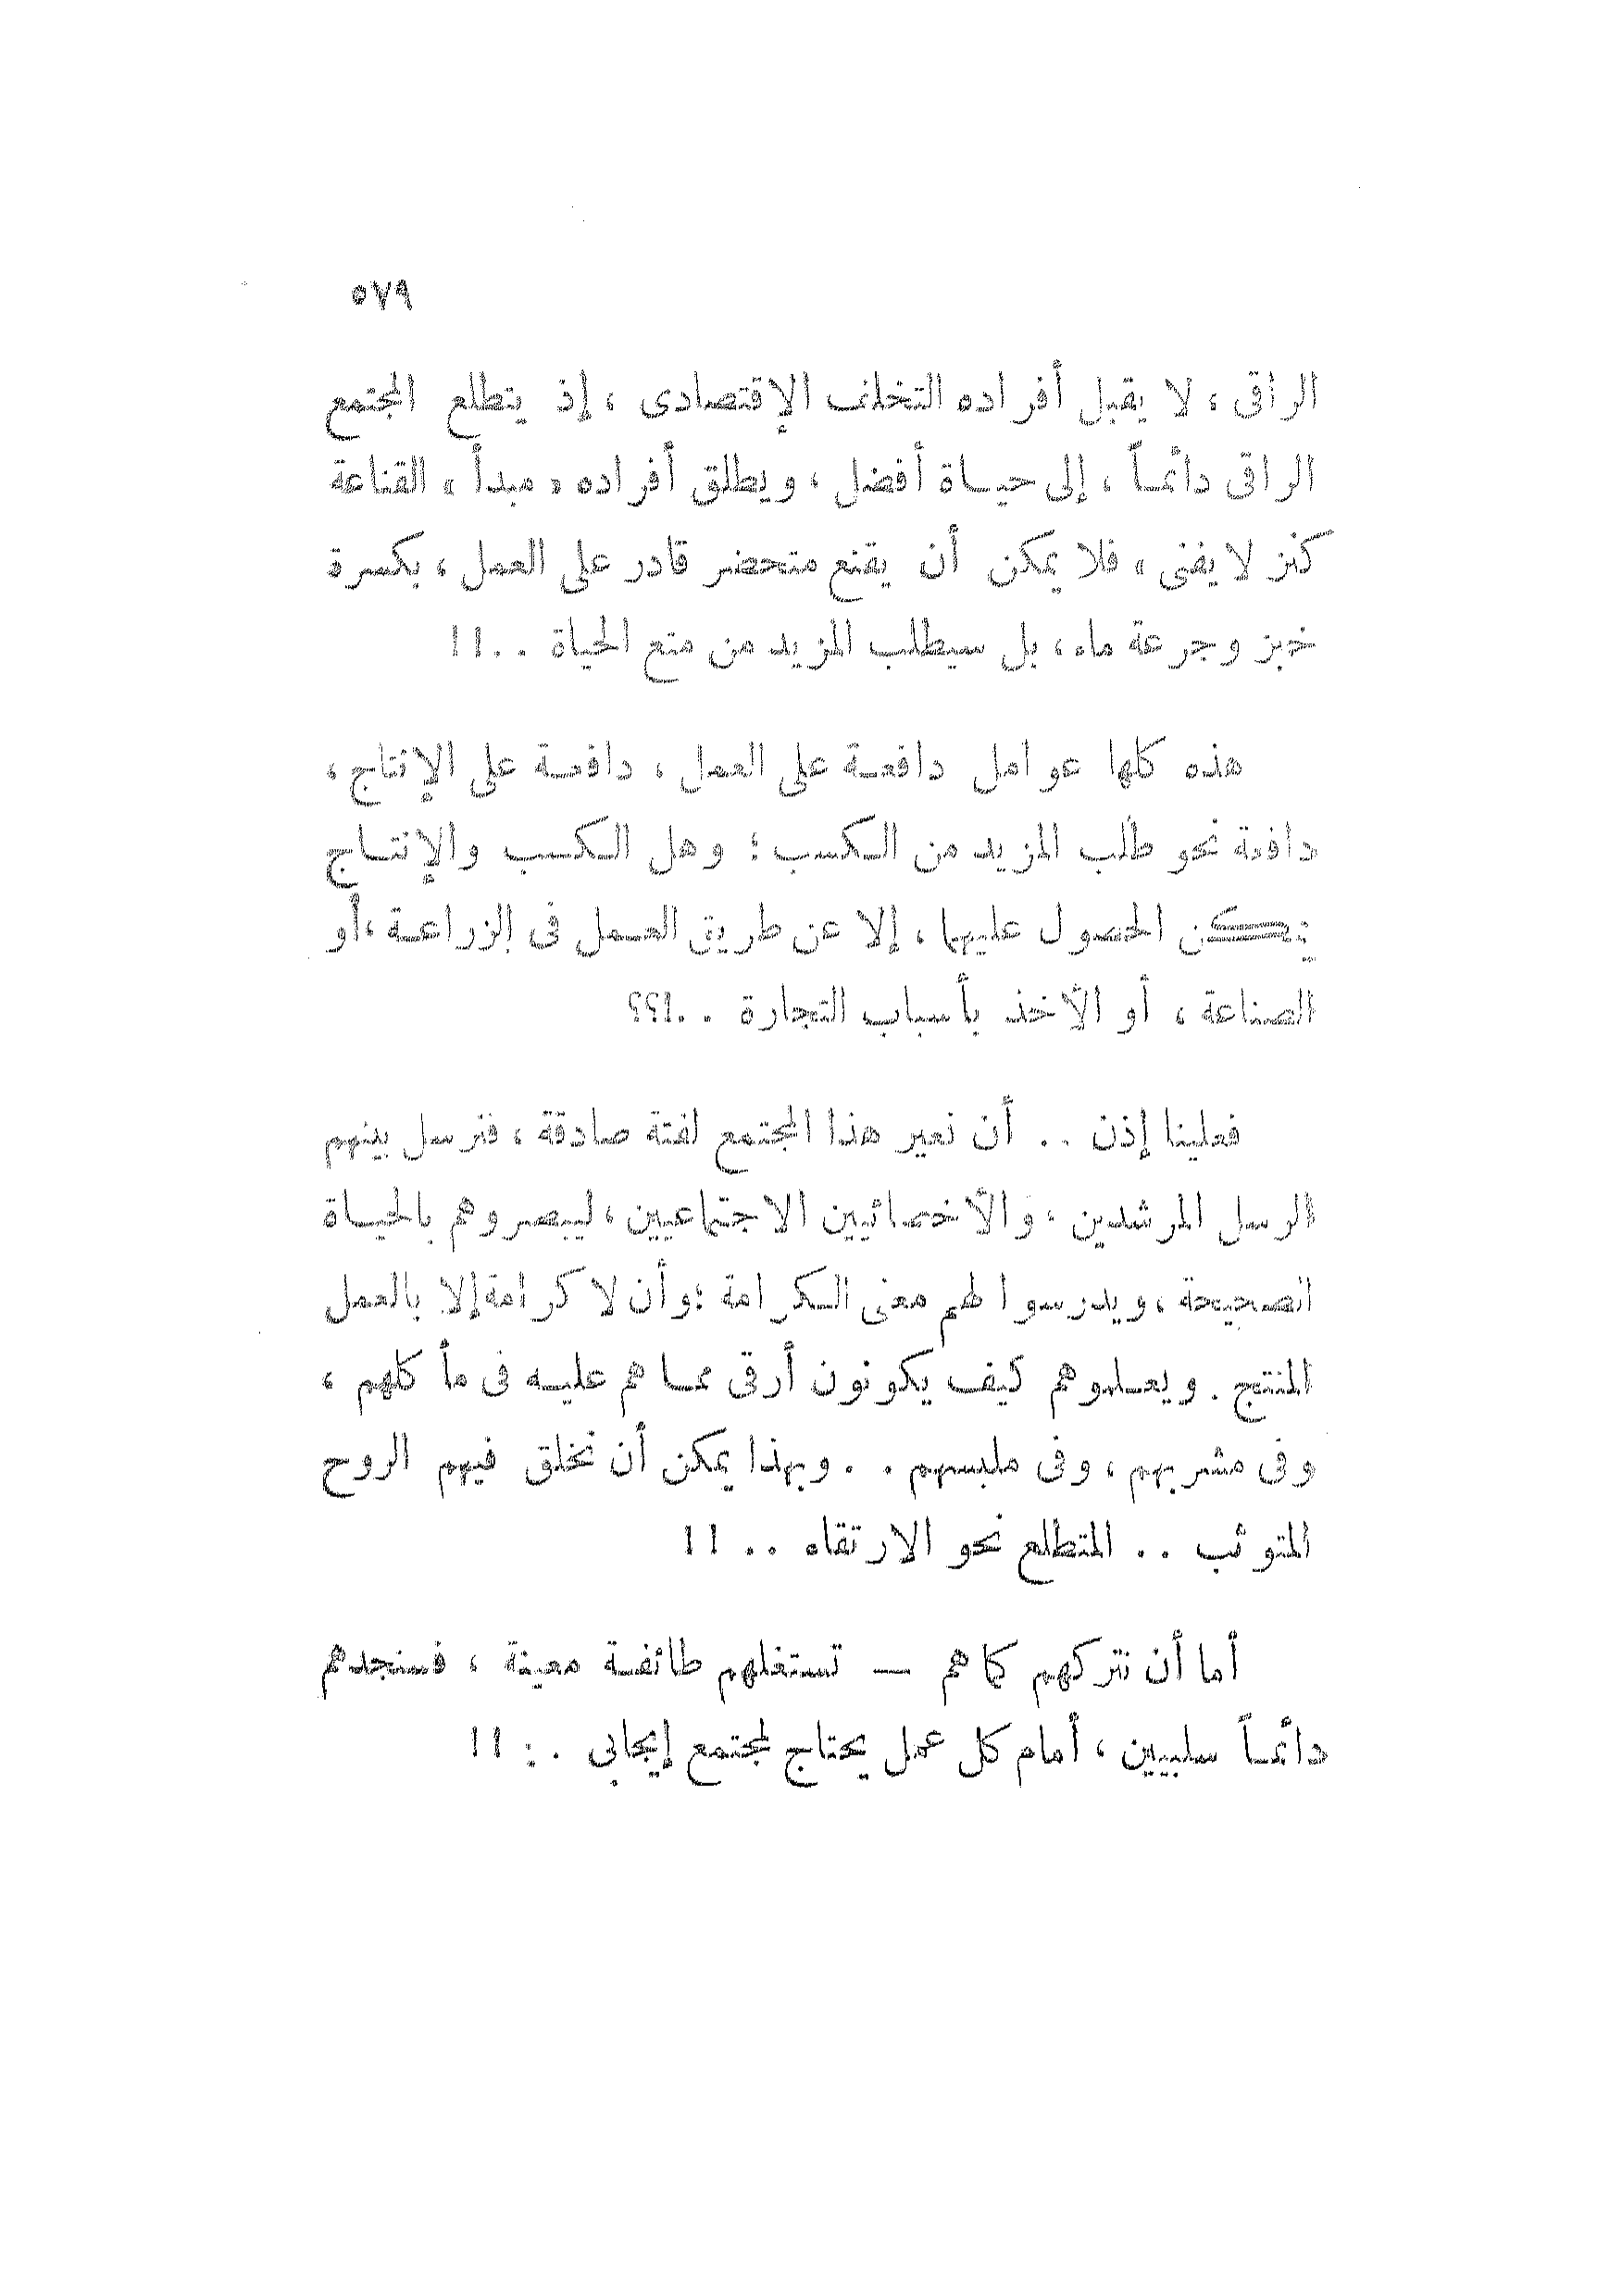 ٥٧٩
الراقى ، لا يقبل أفراده التخلف الإقتصادى ، إذ يتطلع المجتمع
الراقى دائمــاً ، إلى حيــاة أفضل ، ويطلق أفراده « مبدأ » القناعة
كنز لا يفنى » فلا يمكن أن يقنع متحضر قادر على العمل ، بكسرة
خبز وجرعة ماء ، بل سيطلب المزيد من متع الحياة . . !!
هذه كلها عوامل دافعـة على العمل ، دافعـة على الإنتاج ،
دافعة نحو طلب المزيد من الـكسب ؛ وهل الـكـسب والإنتــاج
يمكن الحصول عليهما ، إلا عن طريق العـمل فى الزراعـة ، أو
الصناعة ، أو الأخذ بأسباب التجارة . . !؟؟
فعلينا إذن . . أن نعير هذا المجتمع لفتة صادقة ، فنرسل بينهم
الرسل المرشدين ، والأخصائيين الاجتماعيين ، ليبصروهم بالحيــاة
الصحيحة ، ويدرسوا لهم معنى الـكرامة ؛ وأن لا كرامة إلا بالعمل
المنتج . ويعـلموهم كيف يكونون أرقى ممـا هم عليـه فى مأكلهم ،
وفى مشربهم ، وفى ملبسهم . . وبهذا يمكن أن نخلق فيهم الروح
المتوثب . . المتطلع نحو الارتقاء . . !!
أما أن نتركهم كما هم — تستغلهم طائفـة معينة ، فسنجدهم
دائمــاً سلبيين ، أمام كل عمل يحتاج لمجتمع إيجابى . . !!